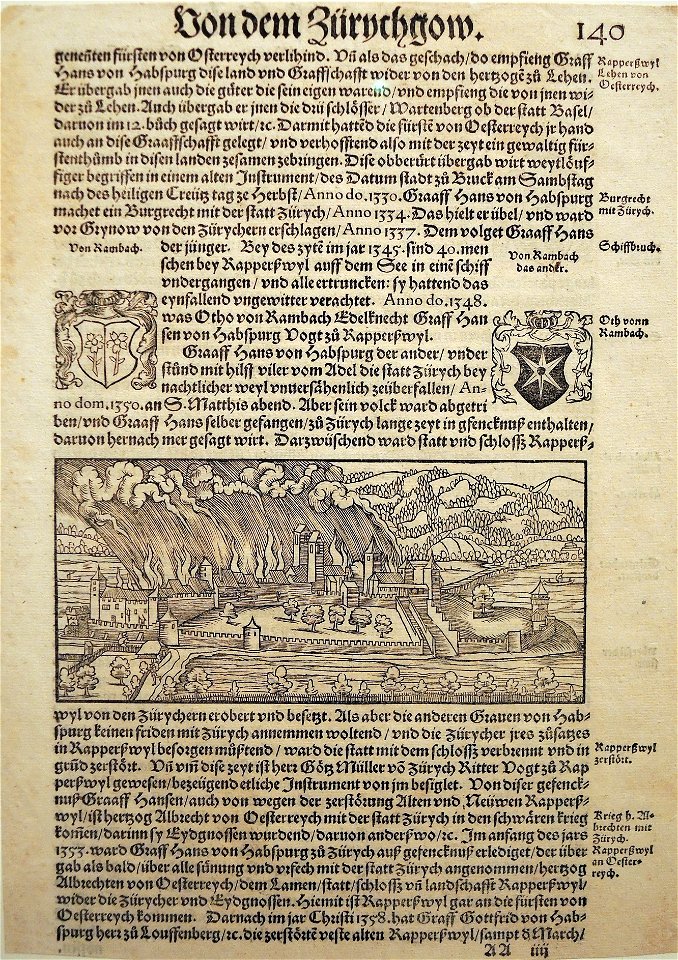 Von dem Zürychgow.
140
geneñten fürsten von Osterreych verlihind. Vñ als das geschach/do empfieng Graff
Hans von Habspurg dise land vnd Graffschafft wider von den hertzogē zů Lehen.
Er übergab jnen auch die güter die sein eigen warend/vnd empfieng die von jnen wi-
der zů Lehen. Auch übergab er jnen die drü schlösser/Wartenberg ob der statt Basel/
daruon im 12. bůch gesagt wirt/rc. Darmit hattēd die fürstē von Oesterreych jr hand
auch an dise Graaffschafft gelegt/vnd verhofftend also mit der zeyt ein gewaltig für-
stenthůmb in disen landen zesamen zebringen. Dise obberürt übergab wirt weytlöuf-
figer begriffen in einem alten Instrument/des Datum stadt zů Bruck am Sambstag
nach des heiligen Creütz tag ze Herbst/Anno do. 1330. Graaff Hans von Habspurg
machet ein Burgrecht mit der statt Zürych/Anno 1334. Das hielt er übel/vnd ward
vor Grynow von den Zürychern erschlagen/Anno 1337. Dem volget Graaff Hans
der jünger. Bey des zytē im jar 1345. sind 40. men
schen bey Rapperßwyl auff dem See in einē schiff
vndergangen/vnd alle ertruncken: sy hattend das
eynfallend vngewitter verachtet. Anno do. 1348.
was Otho von Rambach Edelknecht Graff Han
sen von Habspurg Vogt zů Rapperßwyl.
Graaff Hans von Habspurg der ander/vnder
stůnd mit hilff viler vom Adel die statt Zürych bey
nachtlicher weyl vnuersähenlich zeüberfallen/An-
no dom. 1350. an S. Matthis abend. Aber sein volck ward abgetri
ben/vnd Graaff Hans selber gefangen/zů Zürych lange zeyt in gfencknuß enthalten/
daruon hernach mer gesagt wirt. Darzwüschend ward statt vnd schlossz Rapperß-
Rapperßwyl
Lehen von
Oesterreych.
Burgrecht
mit Zürych.
Schiffbruch.
Von Rambach.
Von Rambach
das ander.
Oth vonn
Rambach.
wyl von den Zürychern erobert vnd besetzt. Als aber die anderen Grauen von Hab-
spurg keinen friden mit Zürych annemmen woltend/vnd die Zürycher jres zůsatzes
in Rapperßwyl besorgen můßtend/ward die statt mit dem schlossz verbrennt vnd in
grūd zerstört. Vñ vm̃ dise zeyt ist herr Götz Müller vō Zürych Ritter Vogt zů Rap
perßwyl gewesen/bezeügend etliche Instrument von jm besiglet. Von diser gefenck-
nuß Graaff Hansen/auch von wegen der zerstörung Alten vnd Neüwen Rapperß-
wyl/ist hertzog Albrecht von Oesterreych mit der statt Zürych in den schwären krieg
kom̃en/darinn sy Eydgnossen wurdend/daruon anderßwo/rc. Im anfang des jars
1353. ward Graff Hans von Habspurg zů Zürych auß gefencknuß erlediget/der über
gab als bald/über alle sünung vnd vrfech mit der statt Zürych angenommen/hertzog
Albrechten von Oesterreych/dem Lamen/statt/schlossz vñ landschafft Rapperßwyl/
wider die Zürycher vnd Eydgnossen. Hiemit ist Rapperßwyl gar an die fürsten von
Oesterreych kommen. Darnach im jar Christi 1358. hat Graff Gottfrid von Hab-
spurg herr zů Louffenberg/rc. die zerstörte veste alten Rapperßwyl/sampt d March/
AA iiij
Rapperßwyl
zerstört.
Krieg h. Al-
brechten mit
Zürych.
Rapperßwyl
an Oester-
reych.